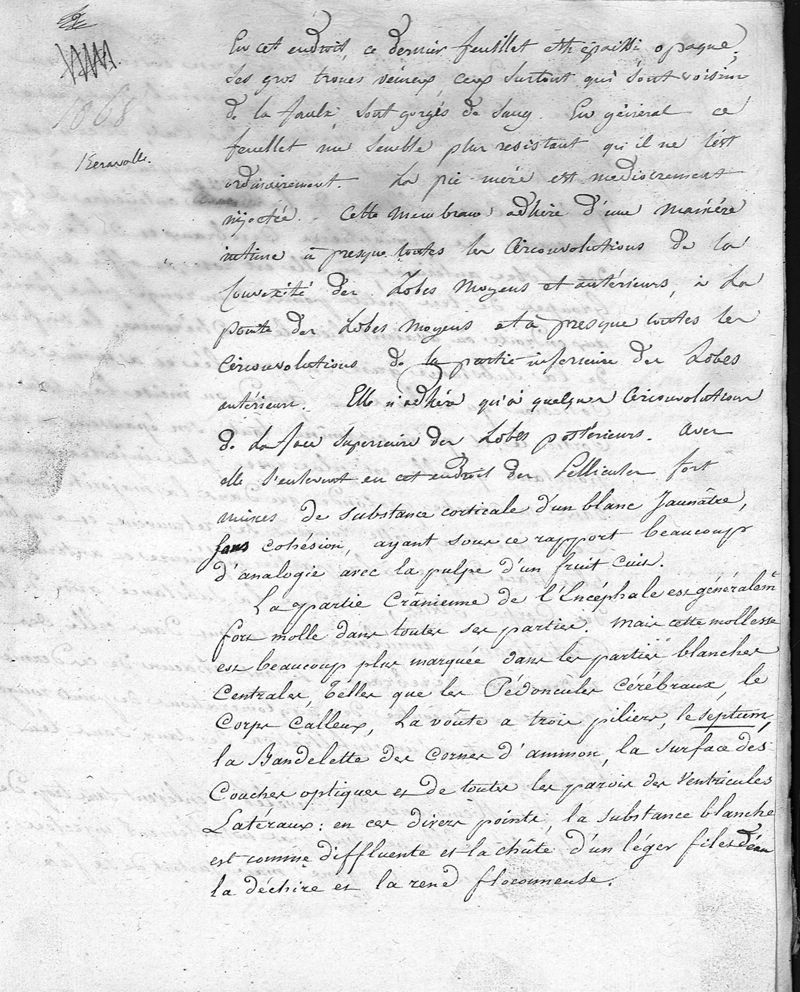 1868
Keravolle.
En cet endroit, ce dernier feuillet est épaissi opaque;
des gros troncs veineux, ceux surtout qui sont voisins
de la faulx sont gorgés de sang. En général ce
feuillet me semble plus resistant qu'il ne l'est
ordinairement. La pie-mère est mediocrement
injectée. Cette membrane adhère d'une manière
intime à presque toutes les Circonvolutions de la
Convexité des Lobes moyens et antérieurs, à la
pointe des Lobes moyens et à presque toutes les
Circonvolutions de la partie inferieure des Lobes
antérieurs. Elle n'adhère qu'à quelques Circonvolutions
de la face Superieure des Lobes postérieurs. Avec
elle s'enlevent en cet endroit des Pellicules fort
minces de substance corticale d'un blanc Jaunâtre,
sans cohésion, ayant sous ce rapport beaucoup
d'analogie avec la pulpe d'un fruit cuit.
La partie Crânienne de l'Encéphale est généralemt
fort molle dans toutes ses parties. Mais cette mollesse
est beaucoup plus marquée dans les parties blanches
Centrales, telles que les Pédoncules Cérébraux, le
Corps Calleux, La voûte a trois piliers, le septum,
la Bandelette des Cornes d'ammon, la surface des
Couches optiques et de toutes les parois des Ventricules
Latéraux: en ces divers points, la substance blanche
est comme diffluente et la chûte d'un léger filet d'eau
la déchire et la rend floconneuse.